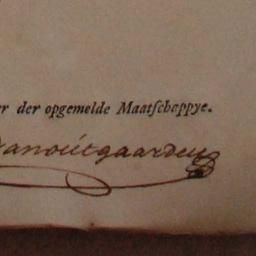 er der opgemelde Maatſchappye.
Vanoutgaarden